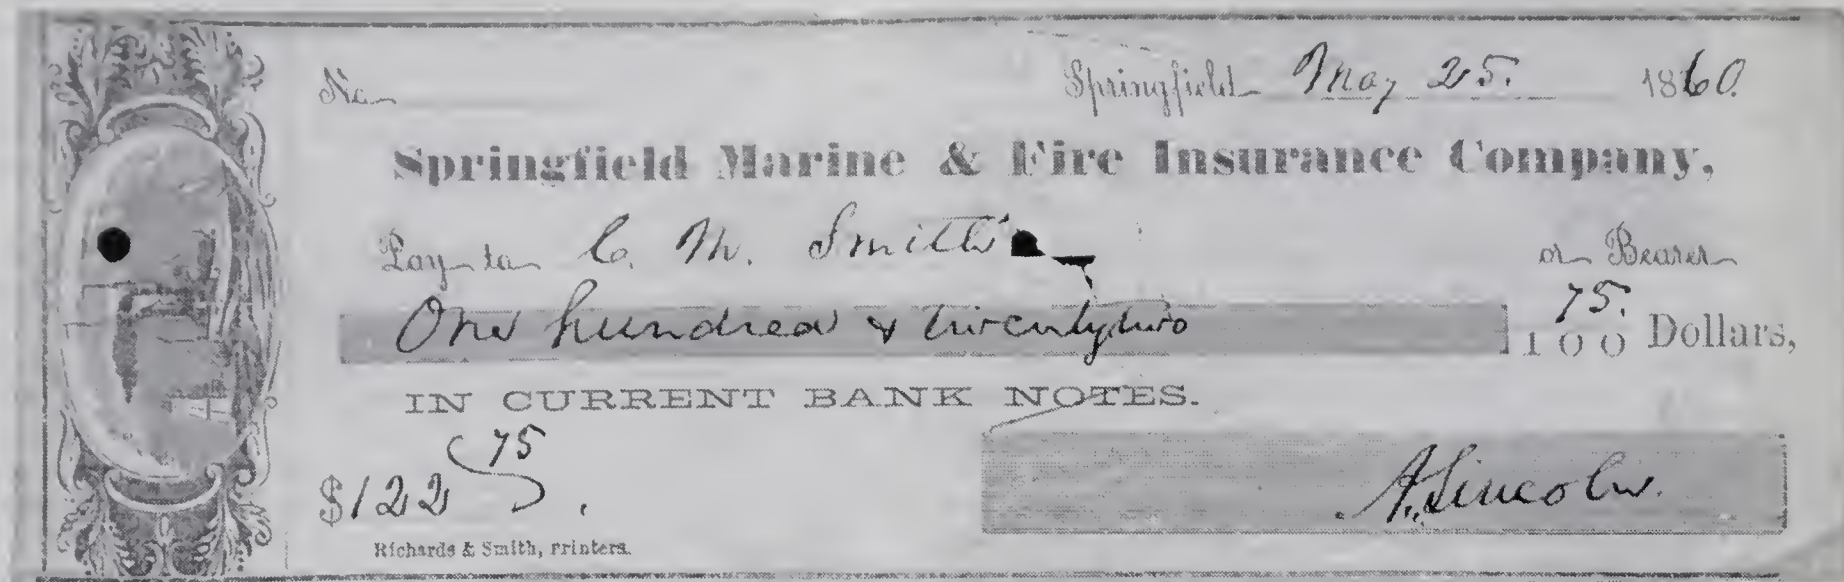 No Springfield May 25. 1860.
Springfield Marine & Fire Insurance Company,
Pay to C. M. Smith or Bearer
One hundred & twenty two 75/100 Dollars,
IN CURRENT BANK NOTES.
$122 75
A. Lincoln.
Richards & Smith, Printers.